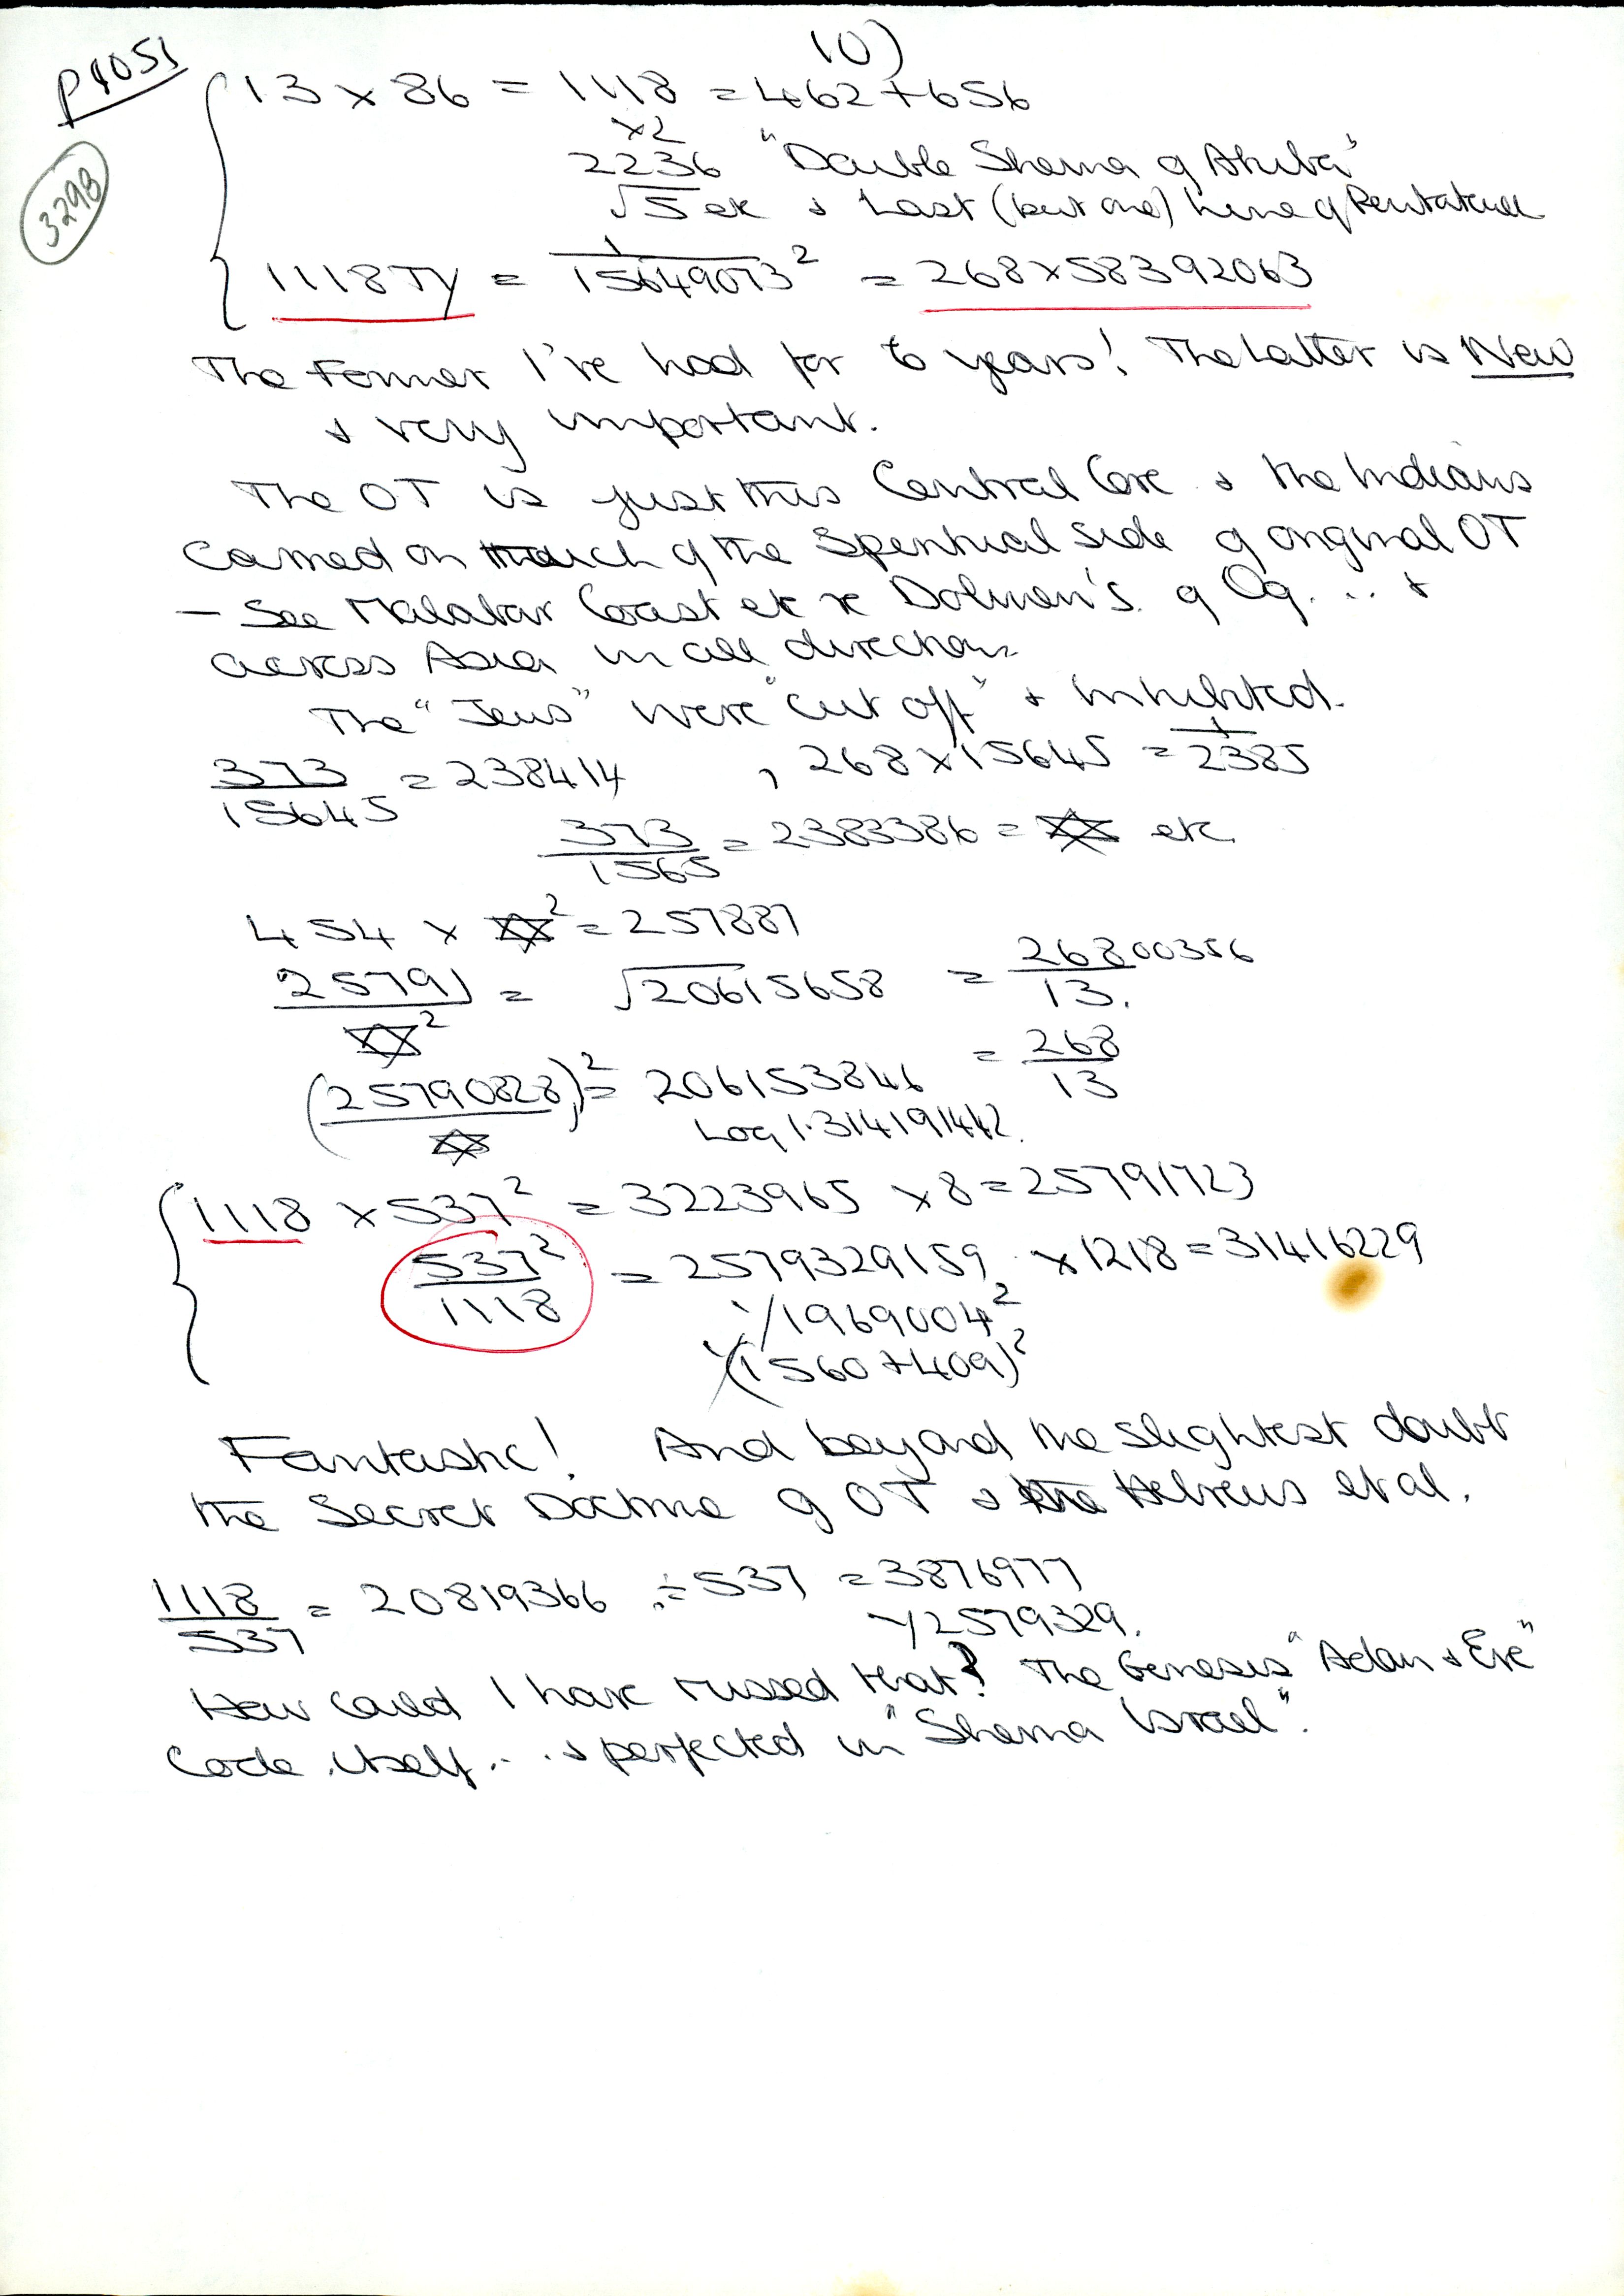 10)
P4051
3298
13 x 86 = 1118 = 462 + 656
x2
2236 "Double Shema of Akiba"
√5 etc & Last (but one) Line of Pentateuch
1118 Ty = 1/15649073² = 268 x 58392063
The Former I've had for 6 years! The Latter is New
& very important.
The OT is just this Central Core & the Indians
carried on much of the Spiritual side of original OT
— See Malabar Coast etc re Dolmen's of Og... &
across Asia in all directions
The "Jews" were "cut off" & inhibited.
373/15645 = 238414 , 268 x 15645 = 1/2385
373/1565 = 2383386 = ✡ etc
454 x ✡² = 257887
25791/✡² = √20615658 = 26800356/13.
= 268/13
(25790828/✡)² = 206153846
Log 1.314191442.
1118 x 537² = 3223965 x 8 = 25791723
537²/1118 = 2579329159 x 1218 = 31416229
1/1969004²
1/(1560 + 409)²
Fantastic! And beyond the slightest doubt
the Secret Doctrine of OT & the Hebrews et al.
1118/537 = 20819366 ÷ 537 = 3876977
1/2579329.
How could I have missed that? The Genesis "Adam & Eve"
Code itself... & perfected in "Shema Israel".